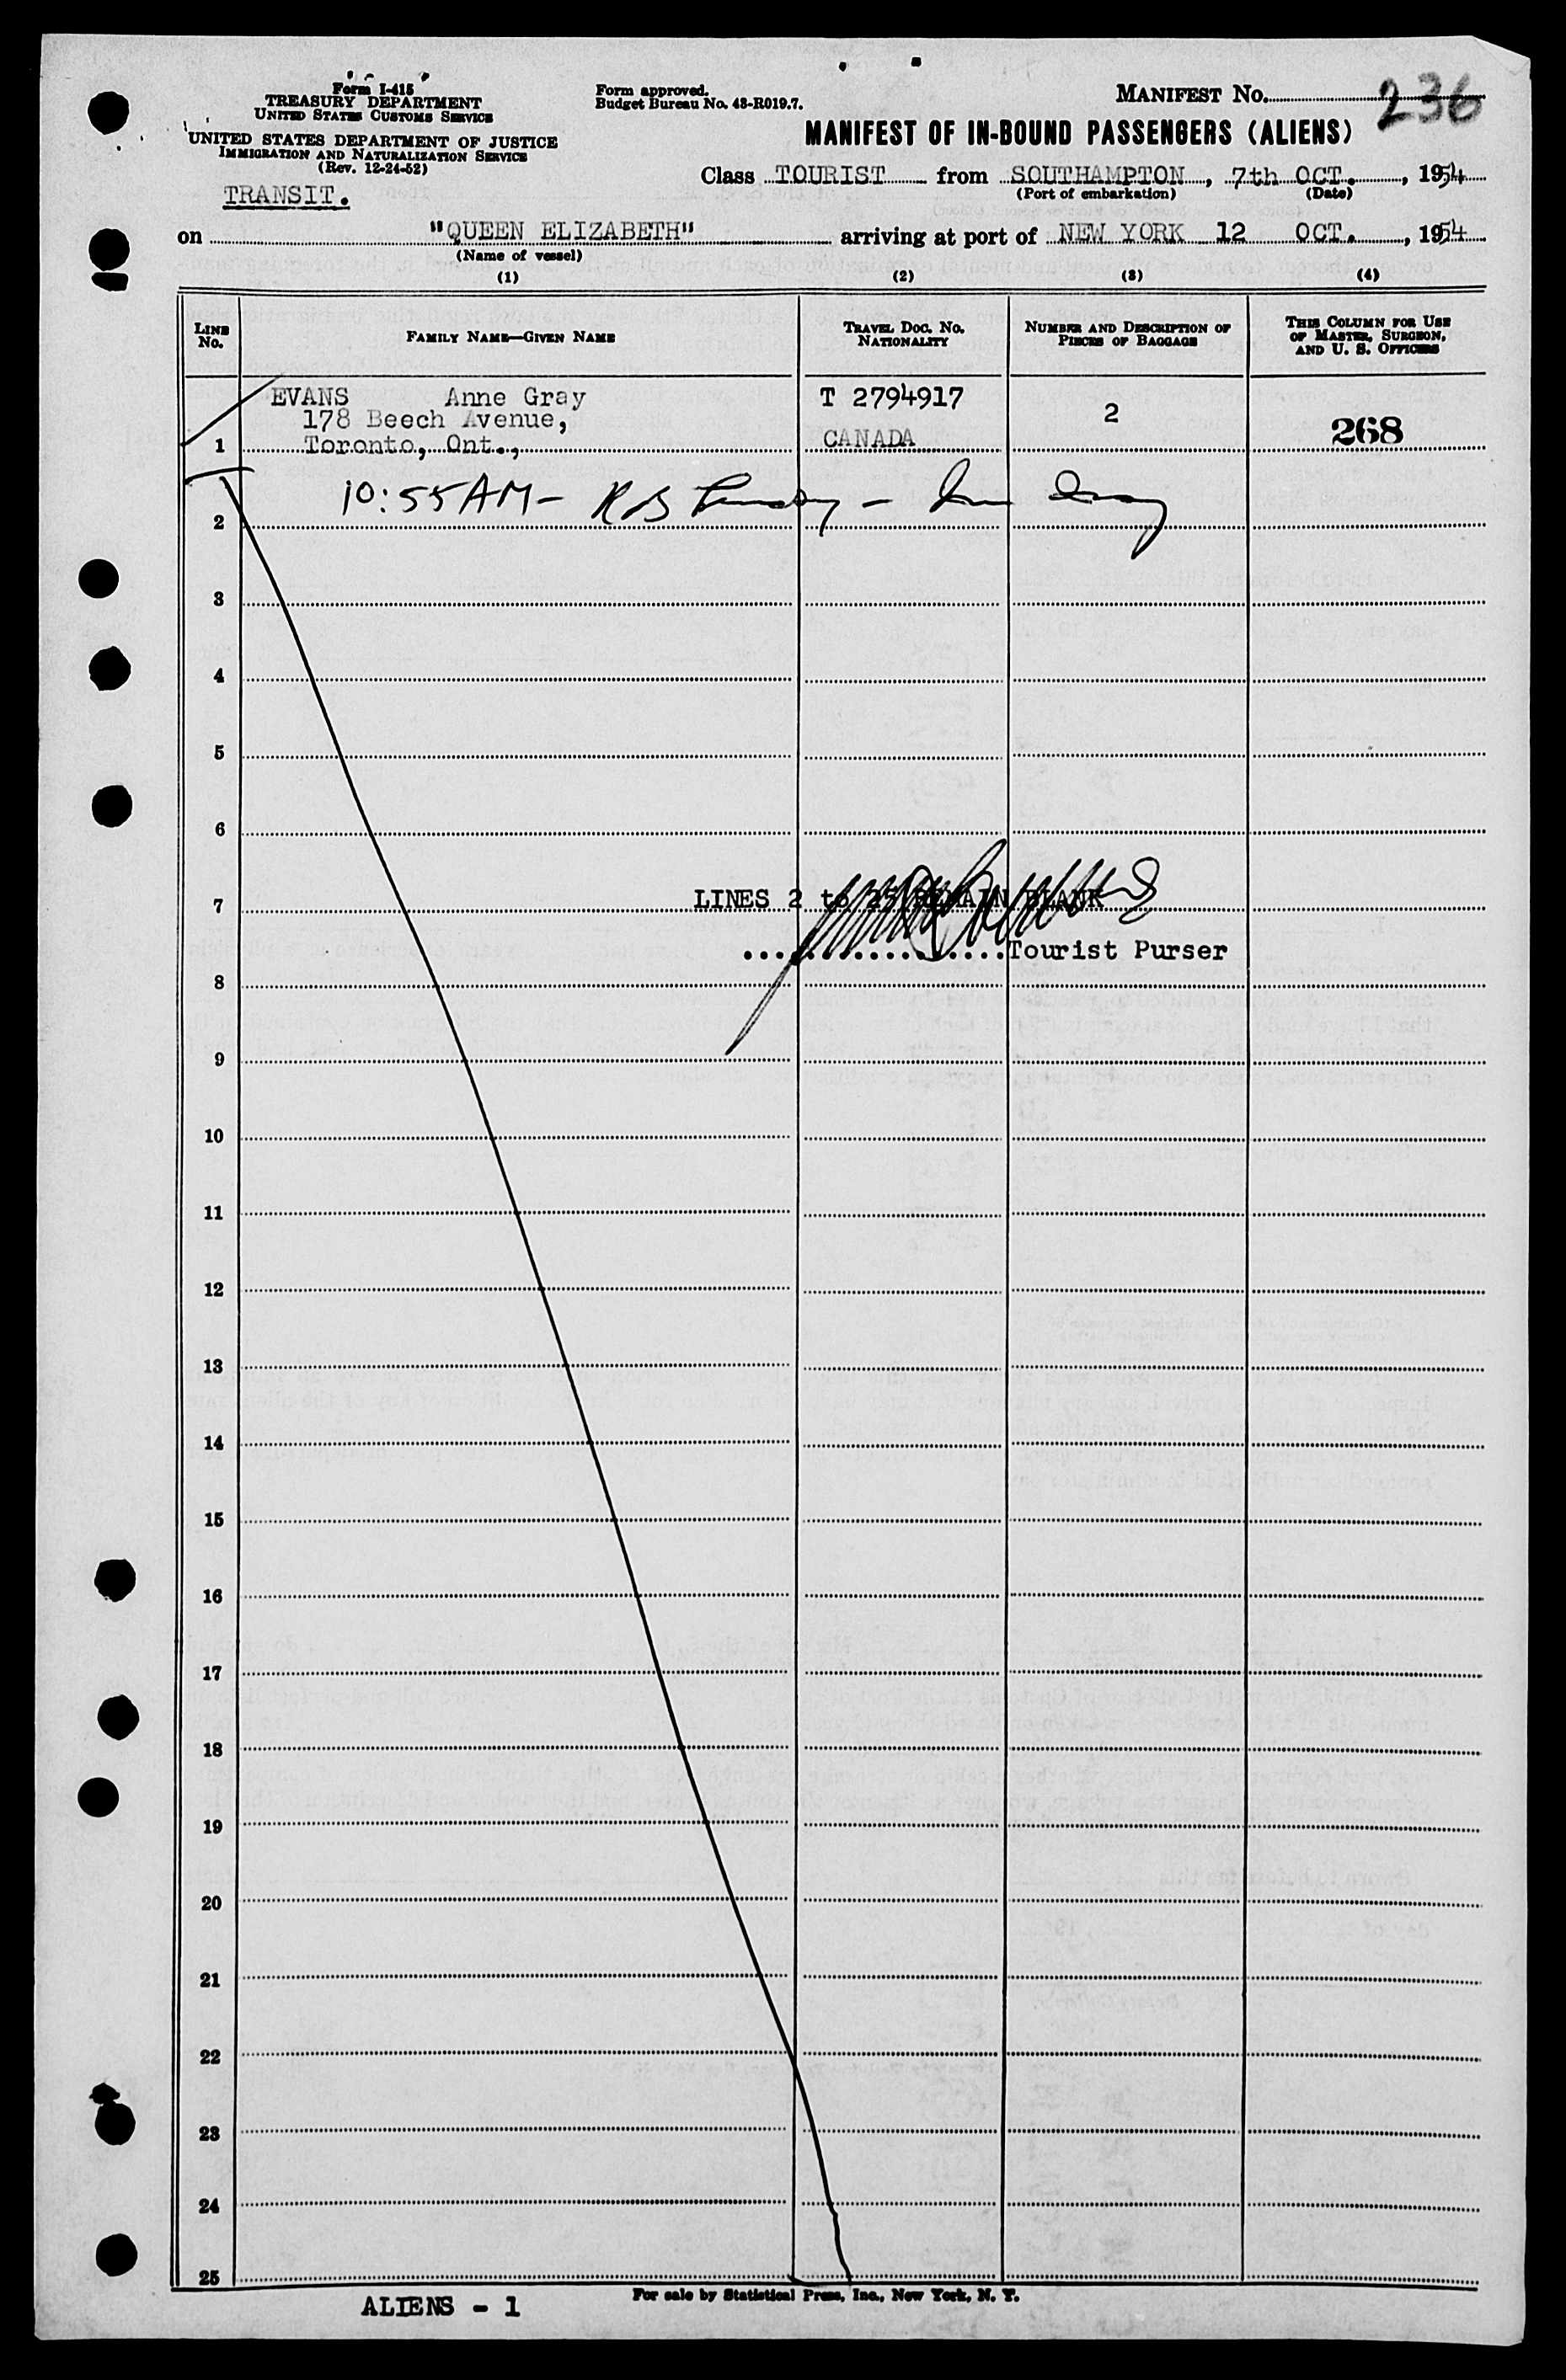 Form I-415
TREASURY DEPARTMENT
UNITED STATES CUSTOMS SERVICE
UNITED STATES DEPARTMENT OF JUSTICE
IMMIGRATION AND NATURALIZATION SERVICE
(Rev. 12-24-52)
TRANSIT.
Form approved.
Budget Bureau No. 43-R019.7.
MANIFEST No. 236
MANIFEST OF IN-BOUND PASSENGERS (ALIENS)
Class TOURIST from SOUTHAMPTON, 7th OCT., 1954
(Port of embarkation) (Date)
on "QUEEN ELIZABETH" arriving at port of NEW YORK 12 OCT., 1954
(Name of vessel)
(1) (2) (3) (4)
LINE No. FAMILY NAME—GIVEN NAME TRAVEL DOC. No. NATIONALITY NUMBER AND DESCRIPTION OF PIECES OF BAGGAGE THIS COLUMN FOR USE OF MASTER, SURGEON, AND U. S. OFFICERS
EVANS Anne Gray T 2794917
178 Beech Avenue, 2
1 Toronto, Ont., CANADA 268
10:55 AM -
2
3
4
5
6
LINES 2 to 25 REMAIN BLANK
7
Tourist Purser
8
9
10
11
12
13
14
15
16
17
18
19
20
21
22
23
24
25
ALIENS - 1
For sale by Statistical Press, Inc., New York, N. Y.